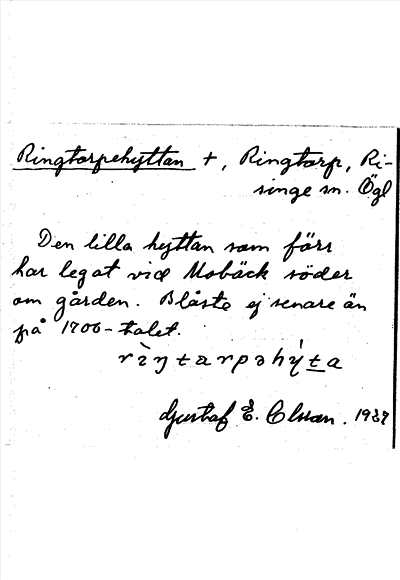 Ringtorpehyttan +, Ringtorp, Ri-
singe sn. Ögl
Den lilla hyttan som förr
har legat vid Mobäck söder
om gården. Blåste ej senare än
på 1700-talet.
rìŋtarpəhý́ta
Gustaf E. Olsson. 1937